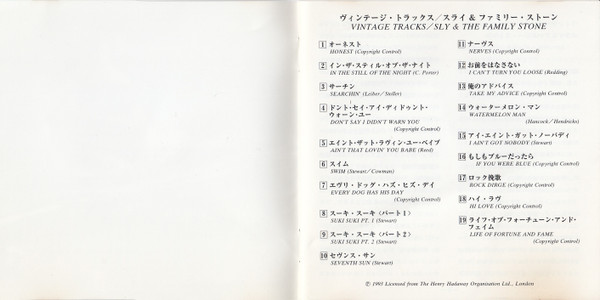 ヴィンテージ・トラックス／スライ & ファミリー・ストーン
VINTAGE TRACKS／SLY & THE FAMILY STONE
1 オーネスト
HONEST (Copyright Control)
2 イン・ザ・スティル・オブ・ザ・ナイト
IN THE STILL OF THE NIGHT (C. Porter)
3 サーチン
SEARCHIN' (Leiber/Stoller)
4 ドント・セイ・アイ・ディドゥント・
ウォーン・ユー
DON'T SAY I DIDN'T WARN YOU
(Copyright Control)
5 エイント・ザット・ラヴィン・ユー・ベイブ
AIN'T THAT LOVIN' YOU BABE (Reed)
6 スイム
SWIM (Stewart/Cowman)
7 エヴリ・ドッグ・ハズ・ヒズ・デイ
EVERY DOG HAS HIS DAY
(Copyright Control)
8 スーキ・スーキ (パート1)
SUKI SUKI PT. 1 (Stewart)
9 スーキ・スーキ (パート2)
SUKI SUKI PT. 2 (Stewart)
10 セヴンス・サン
SEVENTH SUN (Stewart)
11 ナーヴス
NERVES (Copyright Control)
12 お前をはなさない
I CAN'T TURN YOU LOOSE (Redding)
13 俺のアドバイス
TAKE MY ADVICE (Copyright Control)
14 ウォーターメロン・マン
WATERMELON MAN
(Hancock/Hendricks)
15 アイ・エイント・ガット・ノーバディ
I AIN'T GOT NOBODY (Stewart)
16 もしもブルーだったら
IF YOU WERE BLUE (Copyright Control)
17 ロック挽歌
ROCK DIRGE (Copyright Control)
18 ハイ・ラヴ
HI LOVE (Copyright Control)
19 ライフ・オブ・フォーチューン・アンド・
フェイム
LIFE OF FORTUNE AND FAME
(Copyright Control)
Ⓟ 1993 Licensed from The Henry Hadaway Organisation Ltd., London